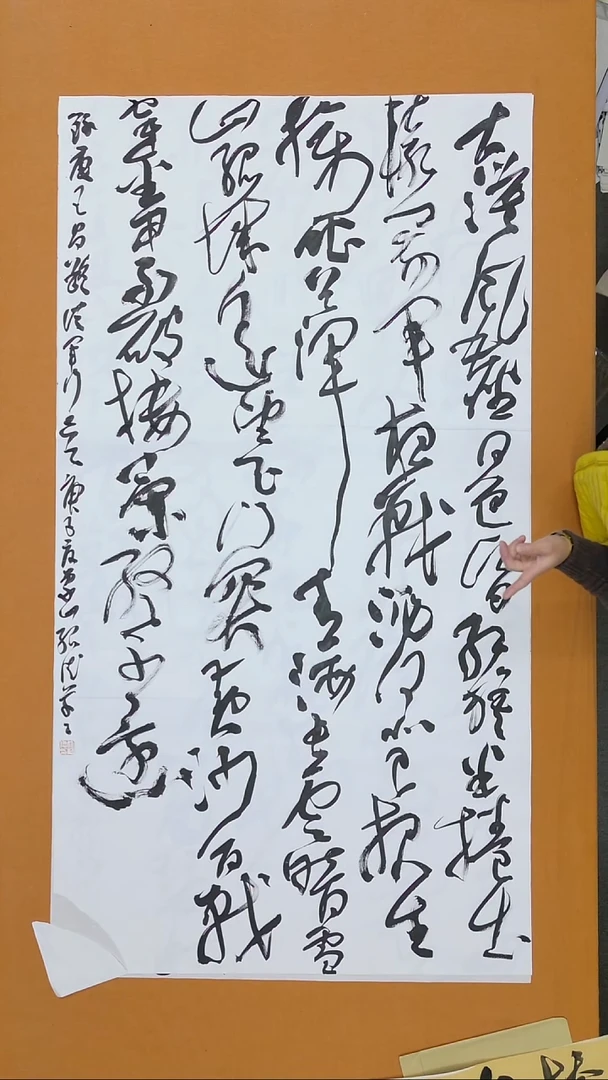 大漠風塵日色昏紅旗半捲出
轅門前軍夜戰洮河北已報生
擒吐谷渾青海長雲暗雪
山孤城遙望玉門關黃沙百戰
穿金甲不破樓蘭終不還
王昌齡從軍行 庚子